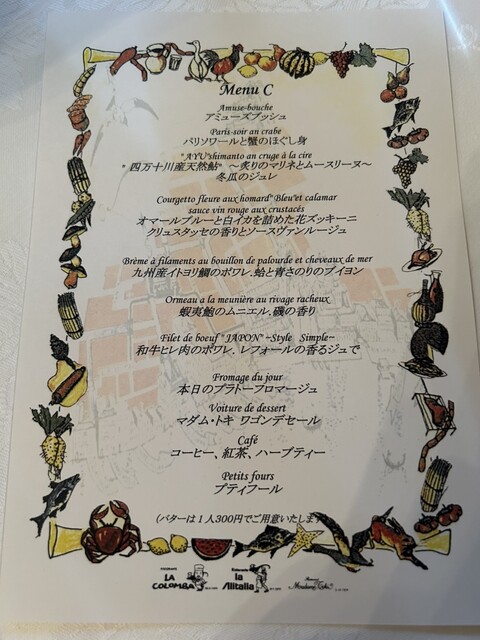 Menu C
Amuse-bouche
アミューズブッシュ
Paris-soir an crabe
パリソワールと蟹のほぐし身
"AYU"shimanto an cruge à la cire
" 四万十川産天然鮎" ～炙りのマリネとムースリーヌ～
冬瓜のジュレ
Courgetto fleure aux homard" Bleu et calamar
sauce vin rouge aux crustacés
オマールブルーと白イカを詰めた花ズッキーニ
クリュスタッセの香りとソースヴァンルージュ
Brème à filaments au bouillon de palourde et cheveaux de mer
九州産イトヨリ鯛のポワレ、蛤と青さのりのブイヨン
Ormeau a la meunière au rivage racheux
蝦夷鮑のムニエル、磯の香り
Filet de boeuf "JAPON" ~Style Simple~
和牛ヒレ肉のポワレ、レフォールの香るジュで
Fromage du jour
本日のプラトーフロマージュ
Voiture de dessert
マダム・トキ ワゴンデセール
Café
コーヒー、紅茶、ハーブティー
Petits fours
プティフール
(バターは1人300円でご用意いたします
LA COLOMBA
la Alitalia